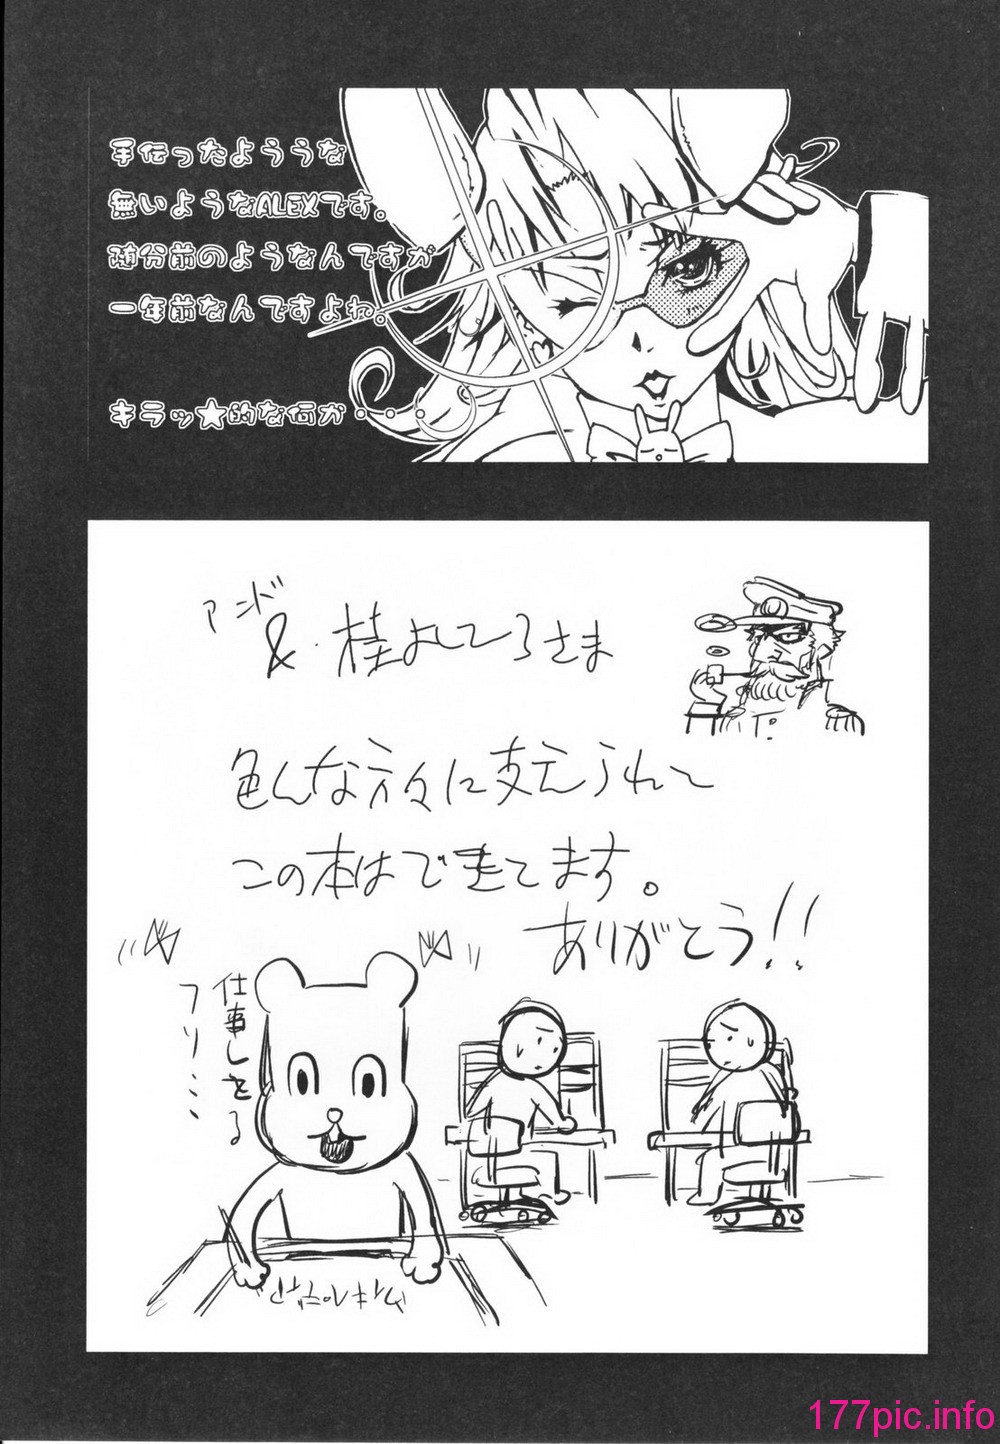 手伝ったようような
無いようなALEXです。
随分前のようなんですが
一年前なんですよね。
キラッ★的な何か・・・
アンド
&・桂よしひろさま
色んな方々に支えられて
この本はできてます。
ありがとう!!
仕事しとる
フリ…
ウィキペディア
177pic.info